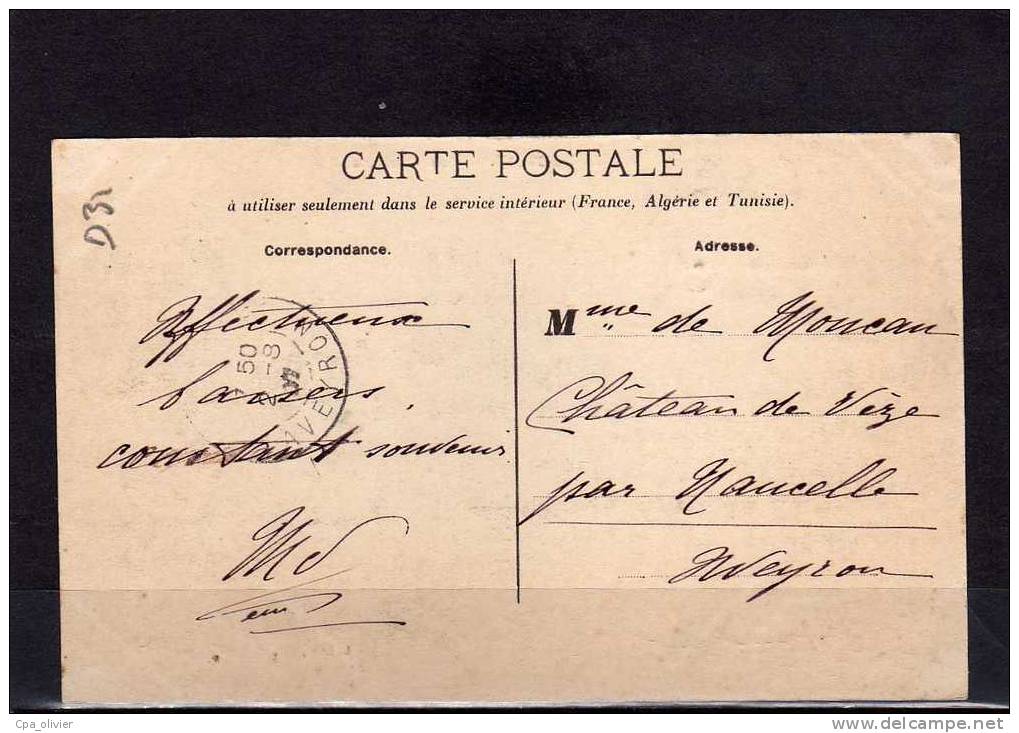 CARTE POSTALE
à utiliser seulement dans le service intérieur (France, Algérie et Tunisie).
D31
Correspondance.
Affectueux
baisers,
constant souvenir
Adresse.
Mme de Moncan
Château de Vèze
par Naucelle
Aveyron
50
2-8
AVEYRON
Cpa_olivier
www.delcampe.net